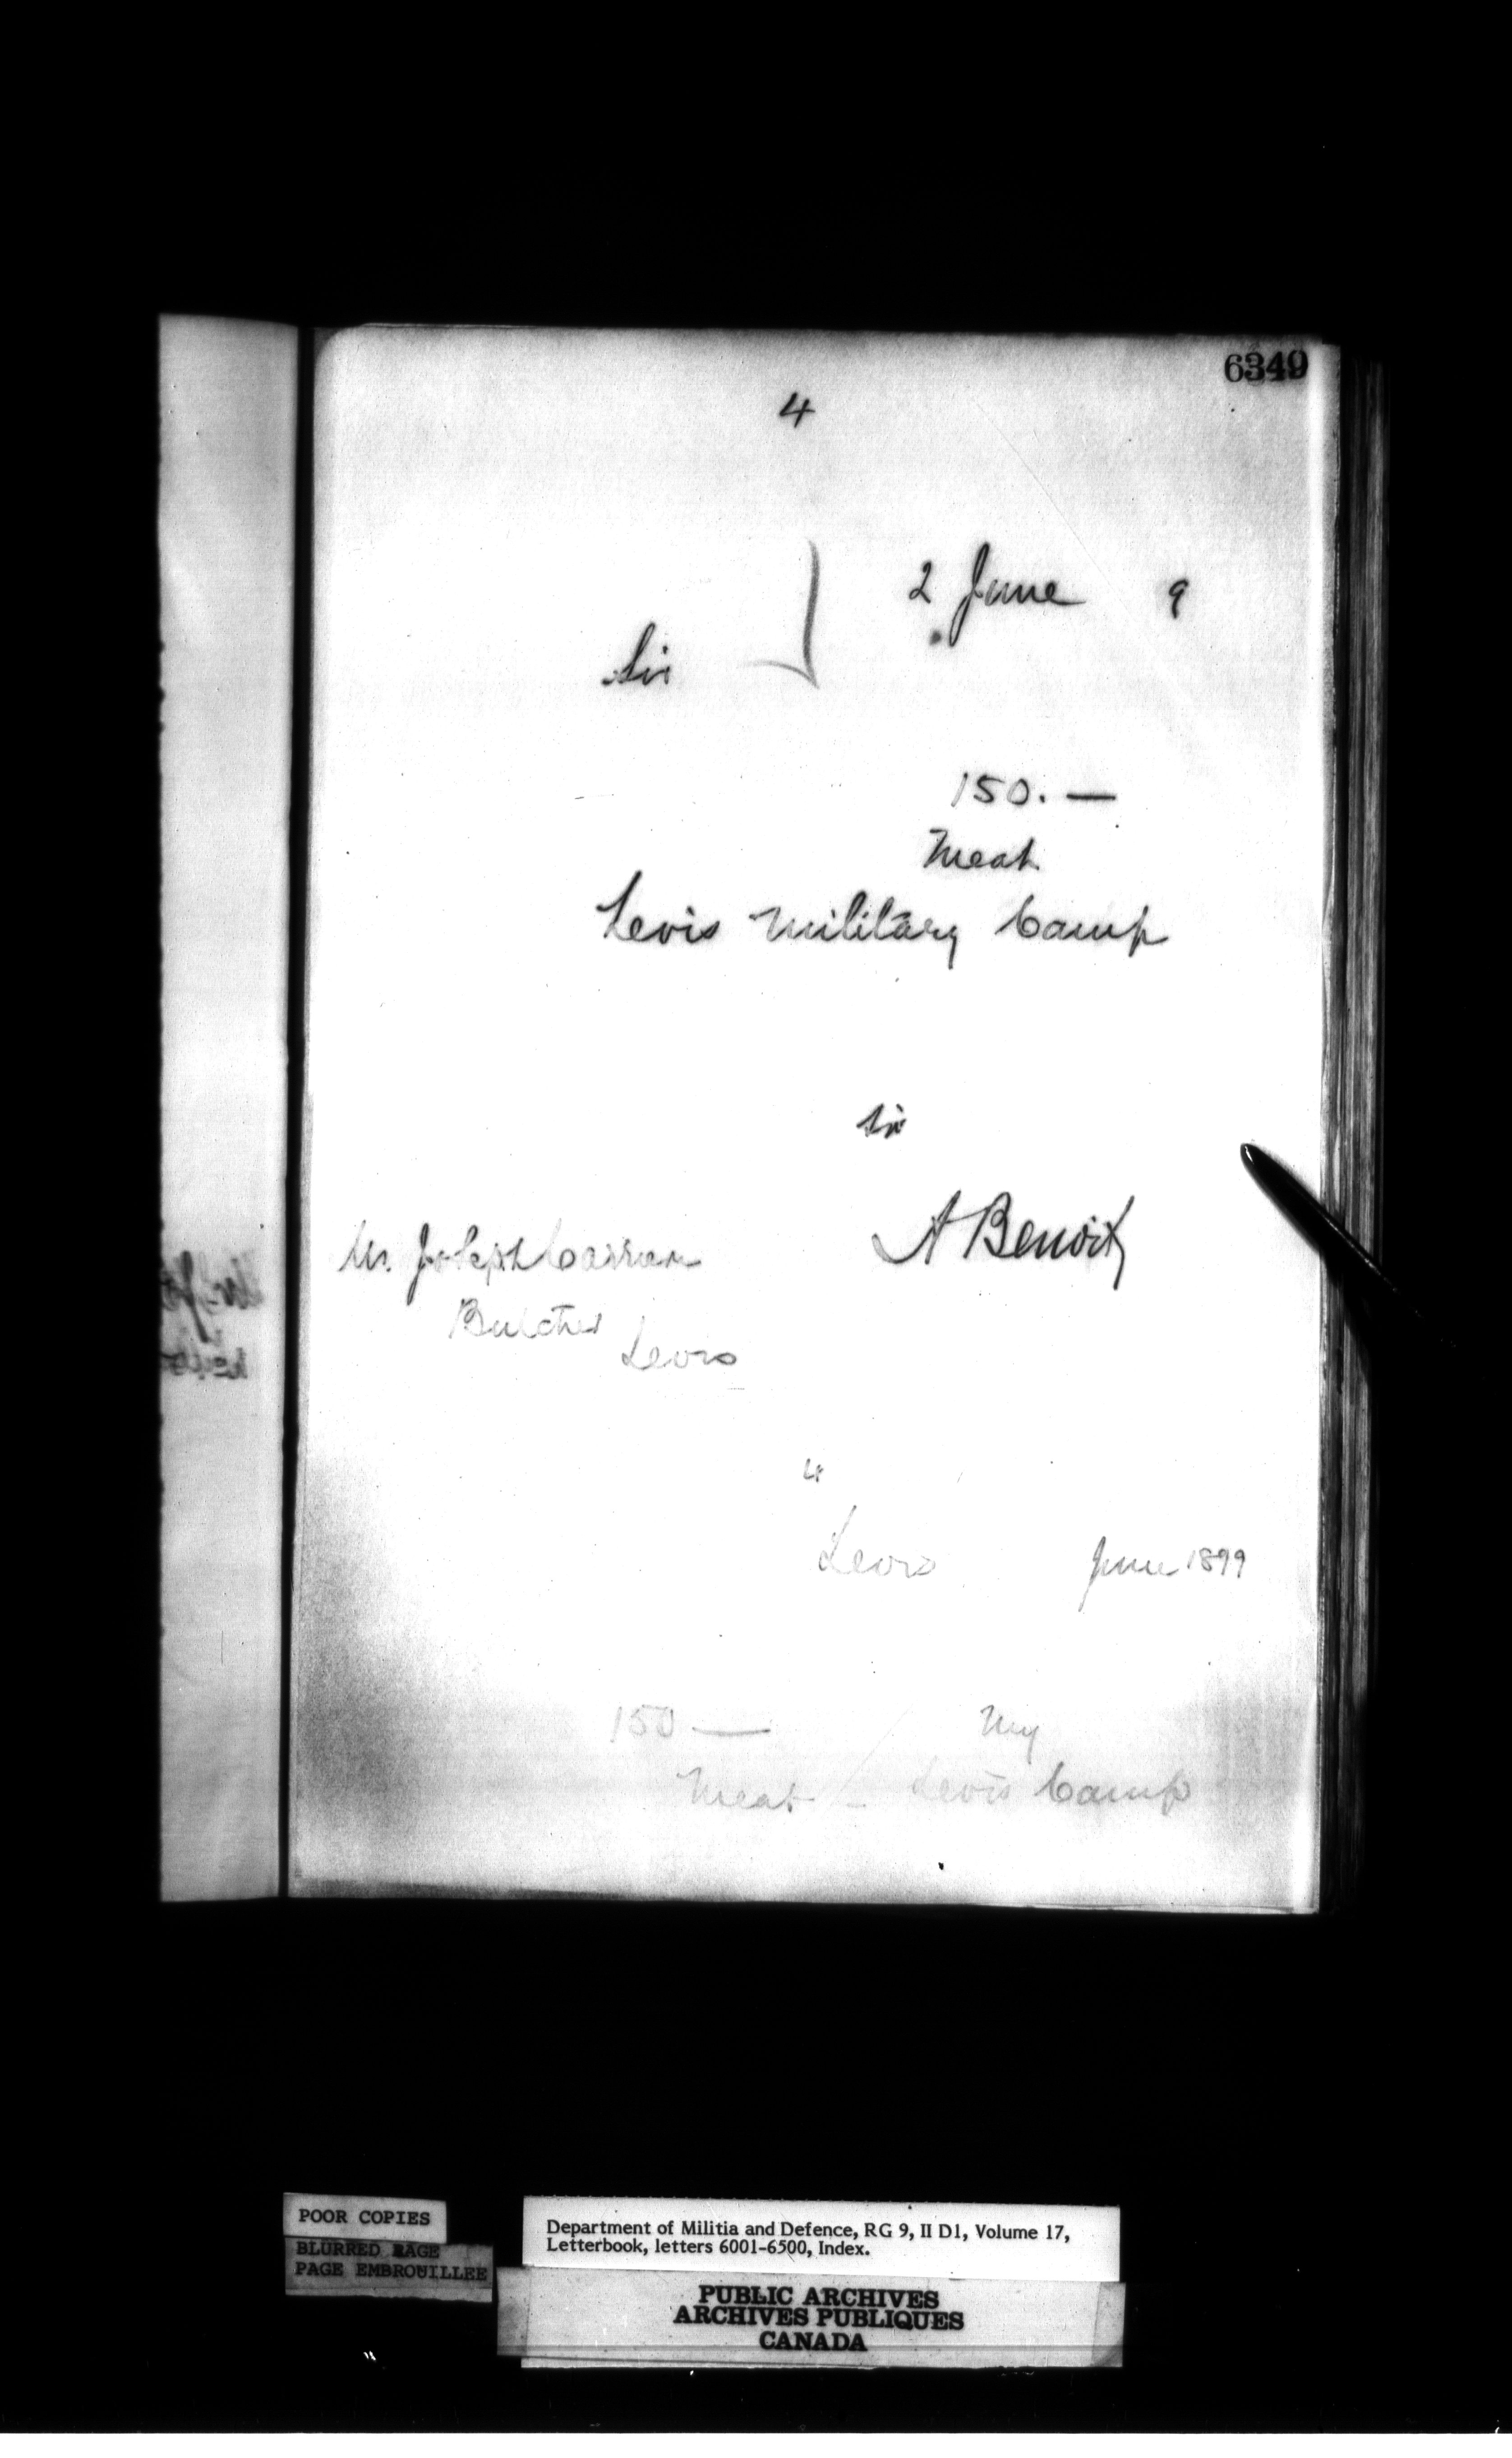 6349
4
2 June 9
Sir
150. —
Meat
Levis Military Camp
Sir
A Benoit
Mr. Joseph
Butcher
Levis
4
Levis June 1899
150 — My
Meat Levis Camp
POOR COPIES
BLURRED PAGE
PAGE EMBROUILLEE
Department of Militia and Defence, RG 9, II D1, Volume 17,
Letterbook, letters 6001-6500, Index.
PUBLIC ARCHIVES
ARCHIVES PUBLIQUES
CANADA